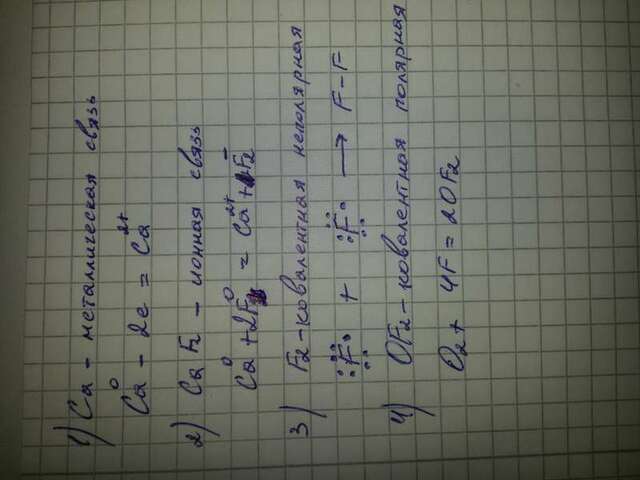 1) Ca - металлическая связь
Ca⁰ - 2e = Ca²⁺
2) CaF₂ - ионная связь
Ca⁰ + 2F⁰ = Ca²⁺ + F₂⁻
3) F₂ - ковалентная неполярная
F + F → F - F
4) OF₂ - ковалентная полярная
O₂ + 4F = 2OF₂